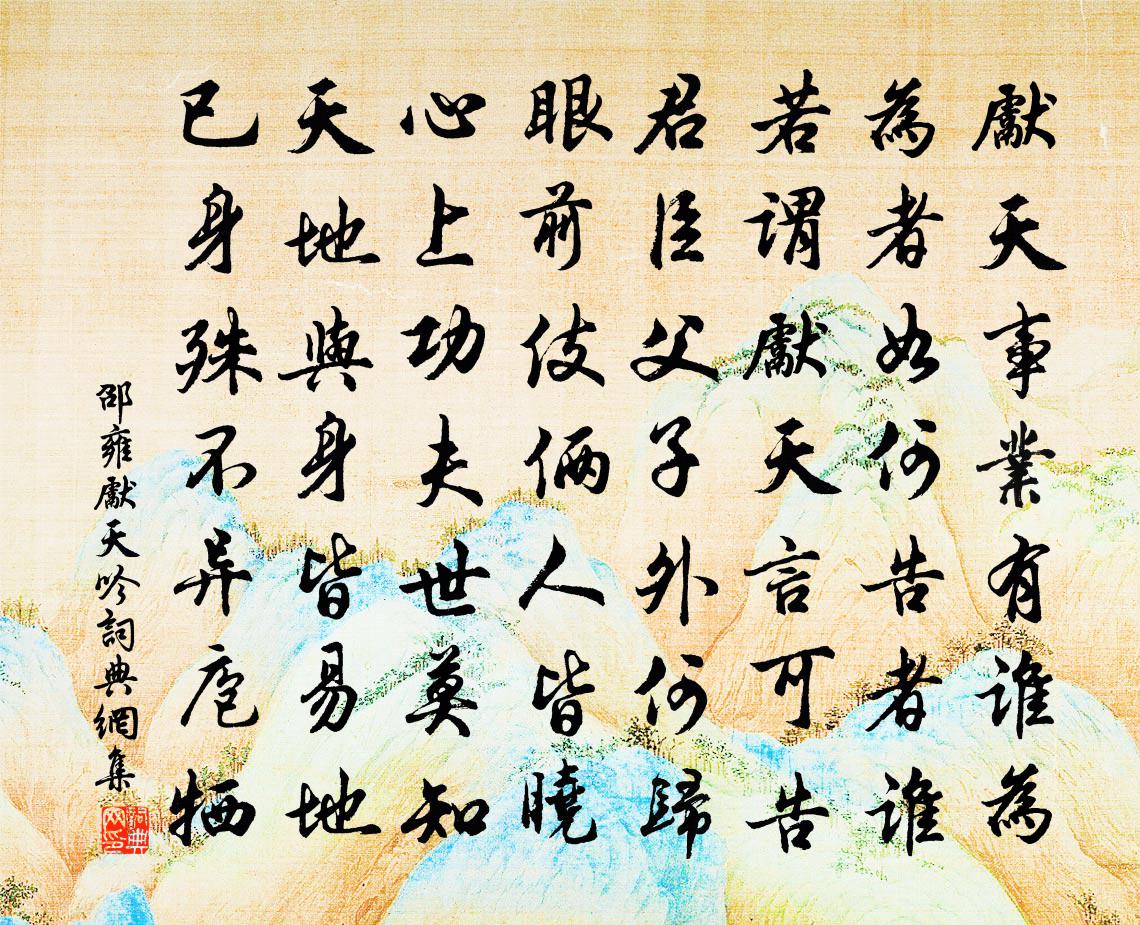 獻天事業有誰為
為者如何告者誰
若謂獻天言可告
君臣父子外何歸
眼前伎倆人皆曉
心上功夫世莫知
天地與身皆易地
已身殊不异庖牺
邵雍獻天吟詞典網集